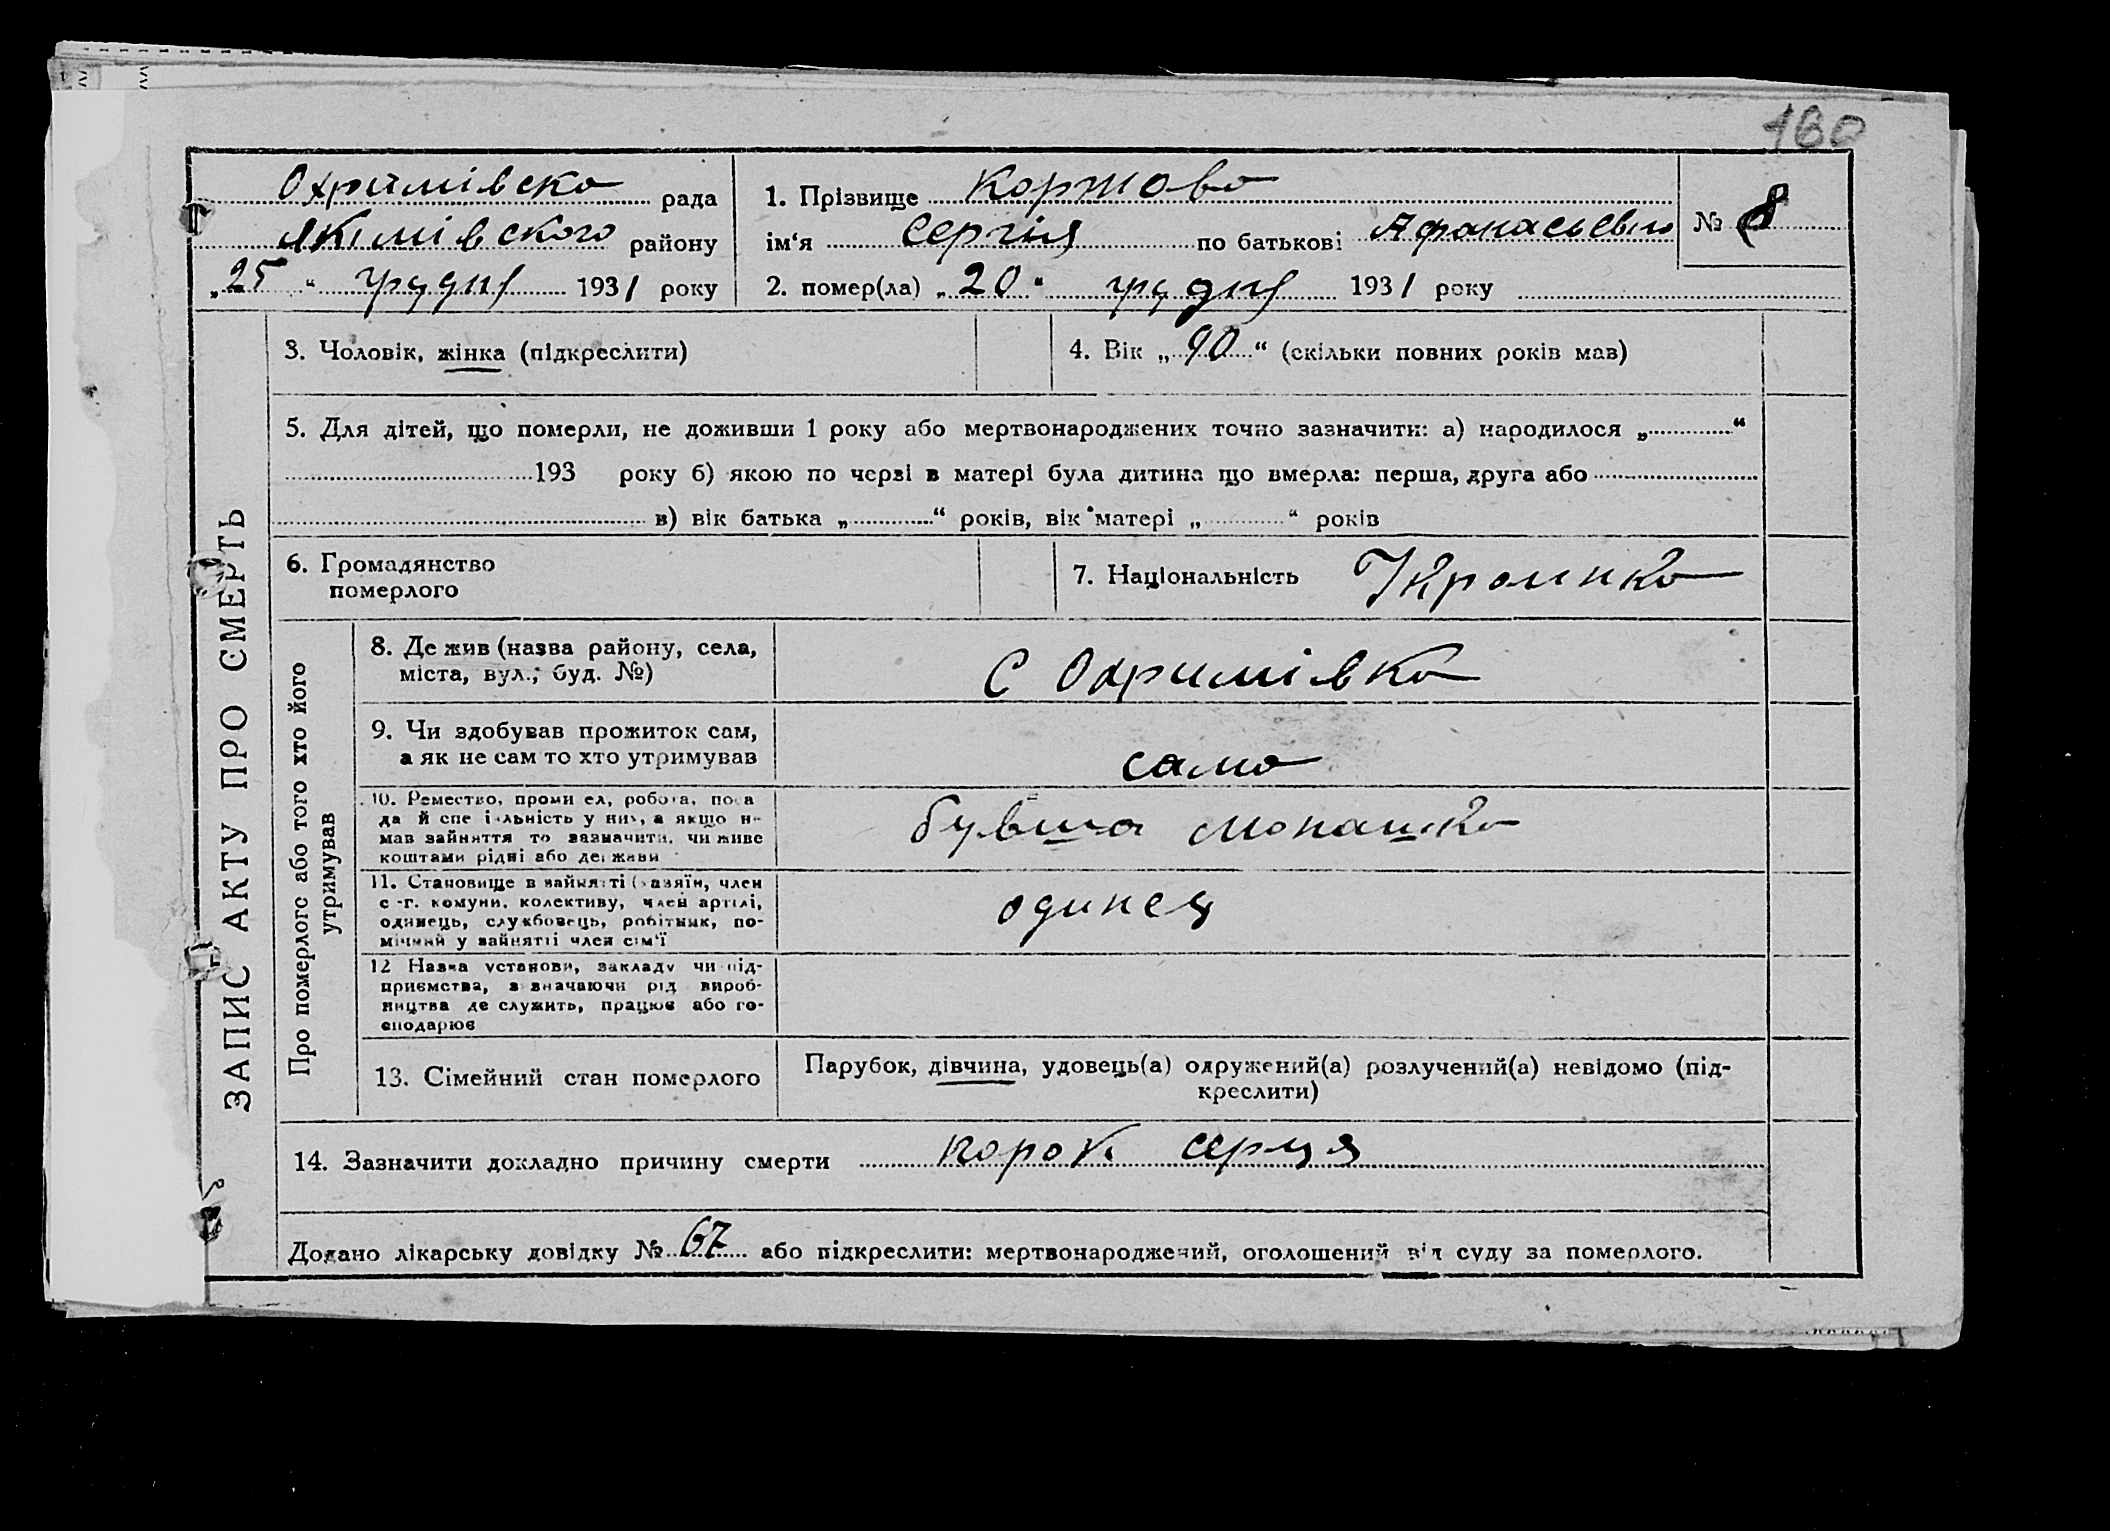 160
Охримівска рада
Якімівского району
„25“ грудня 1931 року
1. Прізвище Коржова
ім‘я Сергія по батькові Афанасьевна
№ 8
2. помер(ла) „20“ грудня 1931 року
3. Чоловік, жінка (підкреслити)
4. Вік „90“ (скільки повних років мав)
5. Для дітей, що померли, не доживши 1 року або мертвонароджених точно зазначити: а) народилося „ “
193 року б) якою по черзі в матері була дитина що вмерла: перша, друга або
в) вік батька „ “ років, вік матері „ “ років
6. Громадянство
померлого
7. Національність Українка
ЗАПИС АКТУ ПРО СМЕРТЬ
Про померлого або того хто його
утримував
8. Де жив (назва району, села,
міста, вул.; буд. №)
С Охримівка
9. Чи здобував прожиток сам,
а як не сам то хто утримував
сама
10. Ремество, промисел, робота, поса
да й спеціяльність у них, а якщо не
мав зайняття то зазначити, чи живе
коштами рідні або держави
бувша монашка
11. Становище в зайнятті (хазяїн, член
с-г. комуни, колективу, член артілі,
одинець, службовець, робітник, по-
мічний у зайнятті член сім‘ї
одинец
12 Назва установи, закладу чи під-
приємства, зазначаючи рід вироб-
ництва де служить, працює або го-
сподарює
13. Сімейний стан померлого
Парубок, дівчина, удовець(а) одружений(а) розлучений(а) невідомо (під-
креслити)
14. Зазначити докладно причину смерти порок серця
Додано лікарську довідку № 67 або підкреслити: мертвонароджений, оголошений від суду за померлого.